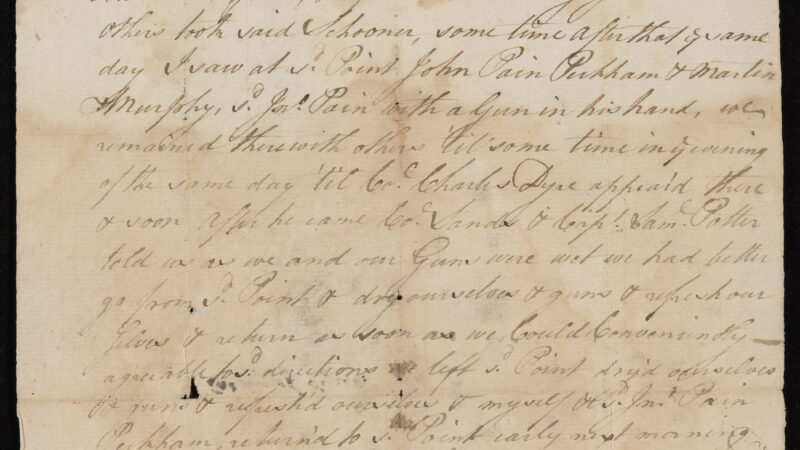 others took said Schooner, some time after that ye same
day I saw at sd. Point John Pain Peckham & Martin
Murphy, sd. Jno. Pain with a Gun in his hand, we
remained there with others 'til some time in ye evening
of the same day 'til Col. Charles Dyre appear'd there
& soon after he came Col. Sands & Capt. Saml. Potter
told us as we and our Guns were wet we had better
go from sd. Point & dry ourselves & guns & refresh our
selves & return as soon as we Could Conveniently —
agreeable to sd. directions we left sd. Point dry'd ourselves
& guns & refresh'd ourselves & myself & sd. Jno. Pain
Peckham, return'd to sd. Point early next morning